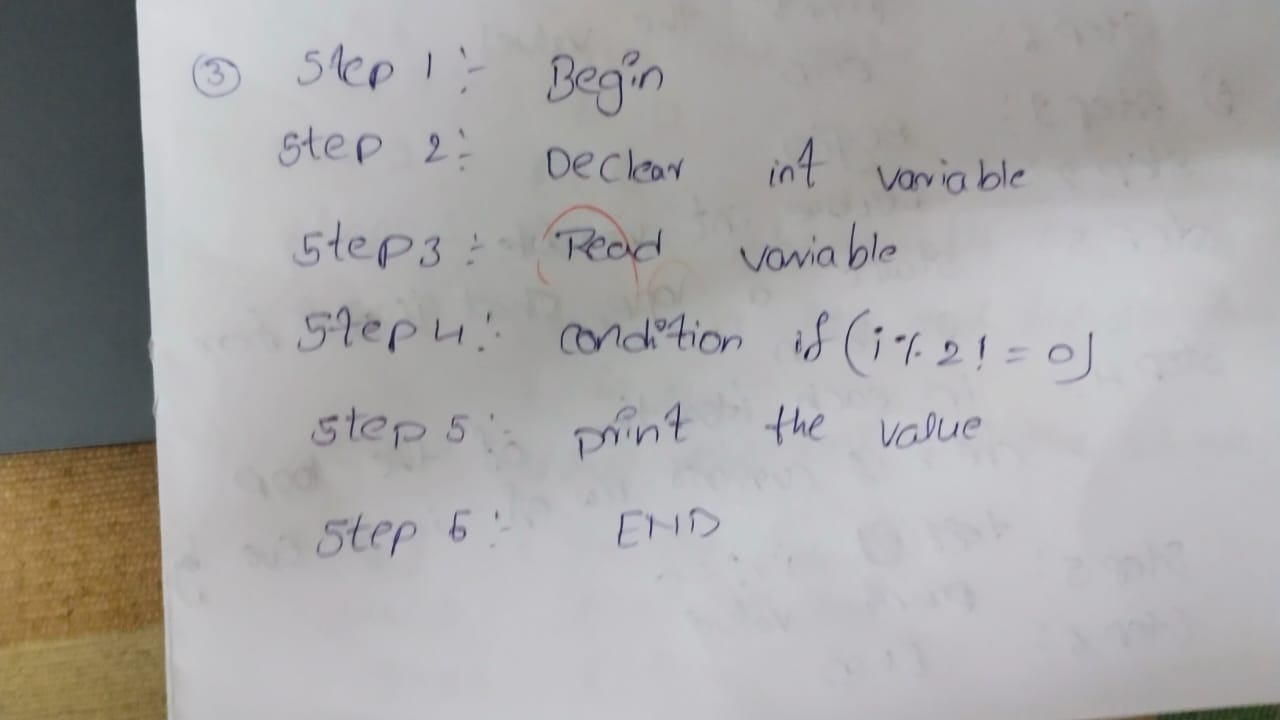 ③ Step 1 :- Begin
Step 2 :- Declear int variable
Step 3 :- Read variable
Step 4 :- condition if (i % 2 ! = 0)
Step 5 :- print the value
Step 6 :- END